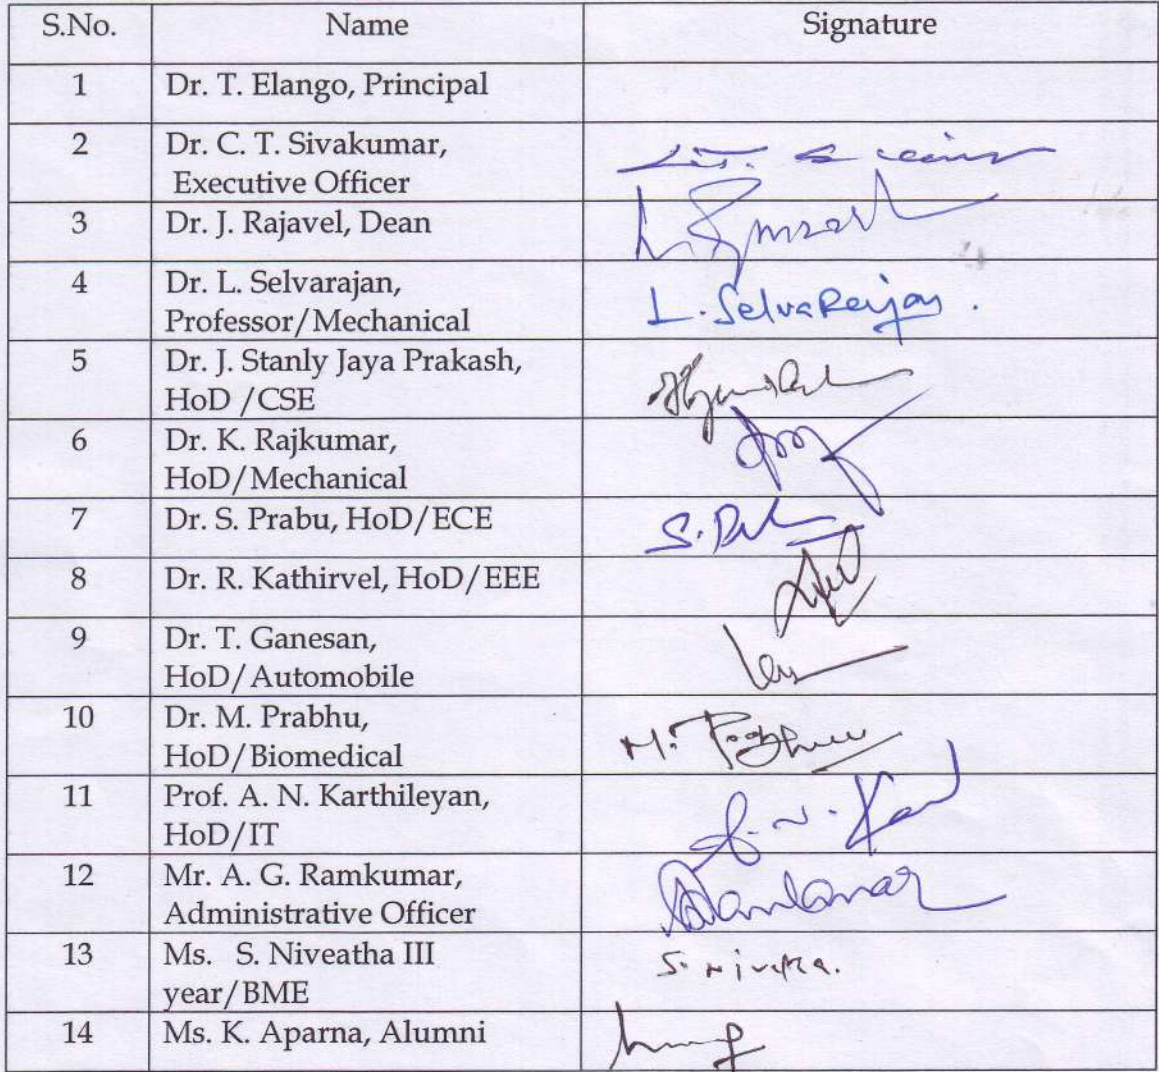 S.No. Name Signature
1 Dr. T. Elango, Principal
2 Dr. C. T. Sivakumar,
Executive Officer
3 Dr. J. Rajavel, Dean
4 Dr. L. Selvarajan,
Professor/Mechanical
L. SelvaRajan.
5 Dr. J. Stanly Jaya Prakash,
HoD /CSE
6 Dr. K. Rajkumar,
HoD/Mechanical
7 Dr. S. Prabu, HoD/ECE
8 Dr. R. Kathirvel, HoD/EEE
9 Dr. T. Ganesan,
HoD/Automobile
10 Dr. M. Prabhu,
HoD/Biomedical
M. Prabhu
11 Prof. A. N. Karthileyan,
HoD/IT
12 Mr. A. G. Ramkumar,
Administrative Officer
13 Ms. S. Niveatha III
year/BME
14 Ms. K. Aparna, Alumni